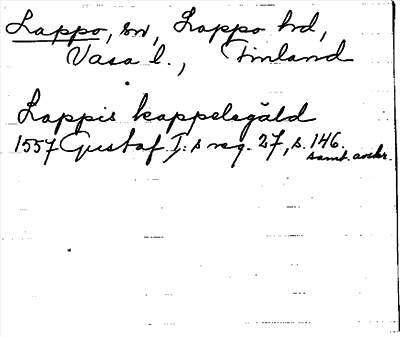 Lappo, sn, Lappo hd,
Vasa l., Finland
Lappis kappelegäld
1557 Gustaf I:s reg. 27, s. 146.
samt. avskr.